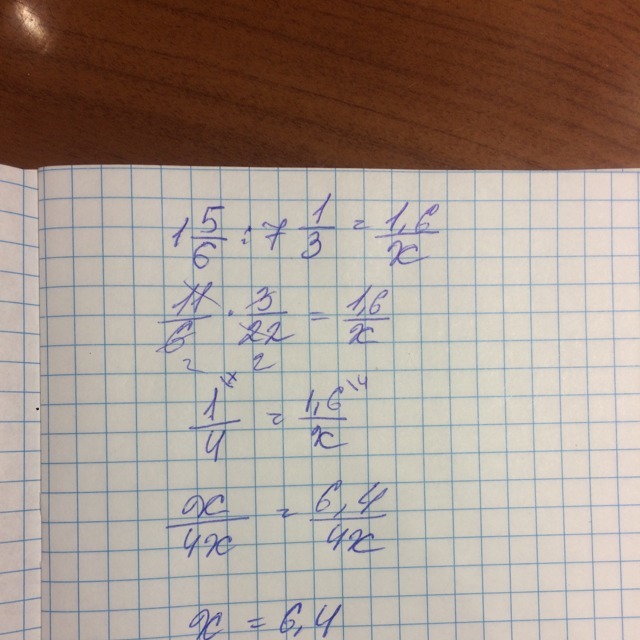 1 5/6 : 7 1/3 = 1,6/x
11/6 · 3/22 = 1,6/x
2 2
1/4 = 1,6/x
x/4x = 6,4/4x
x = 6,4